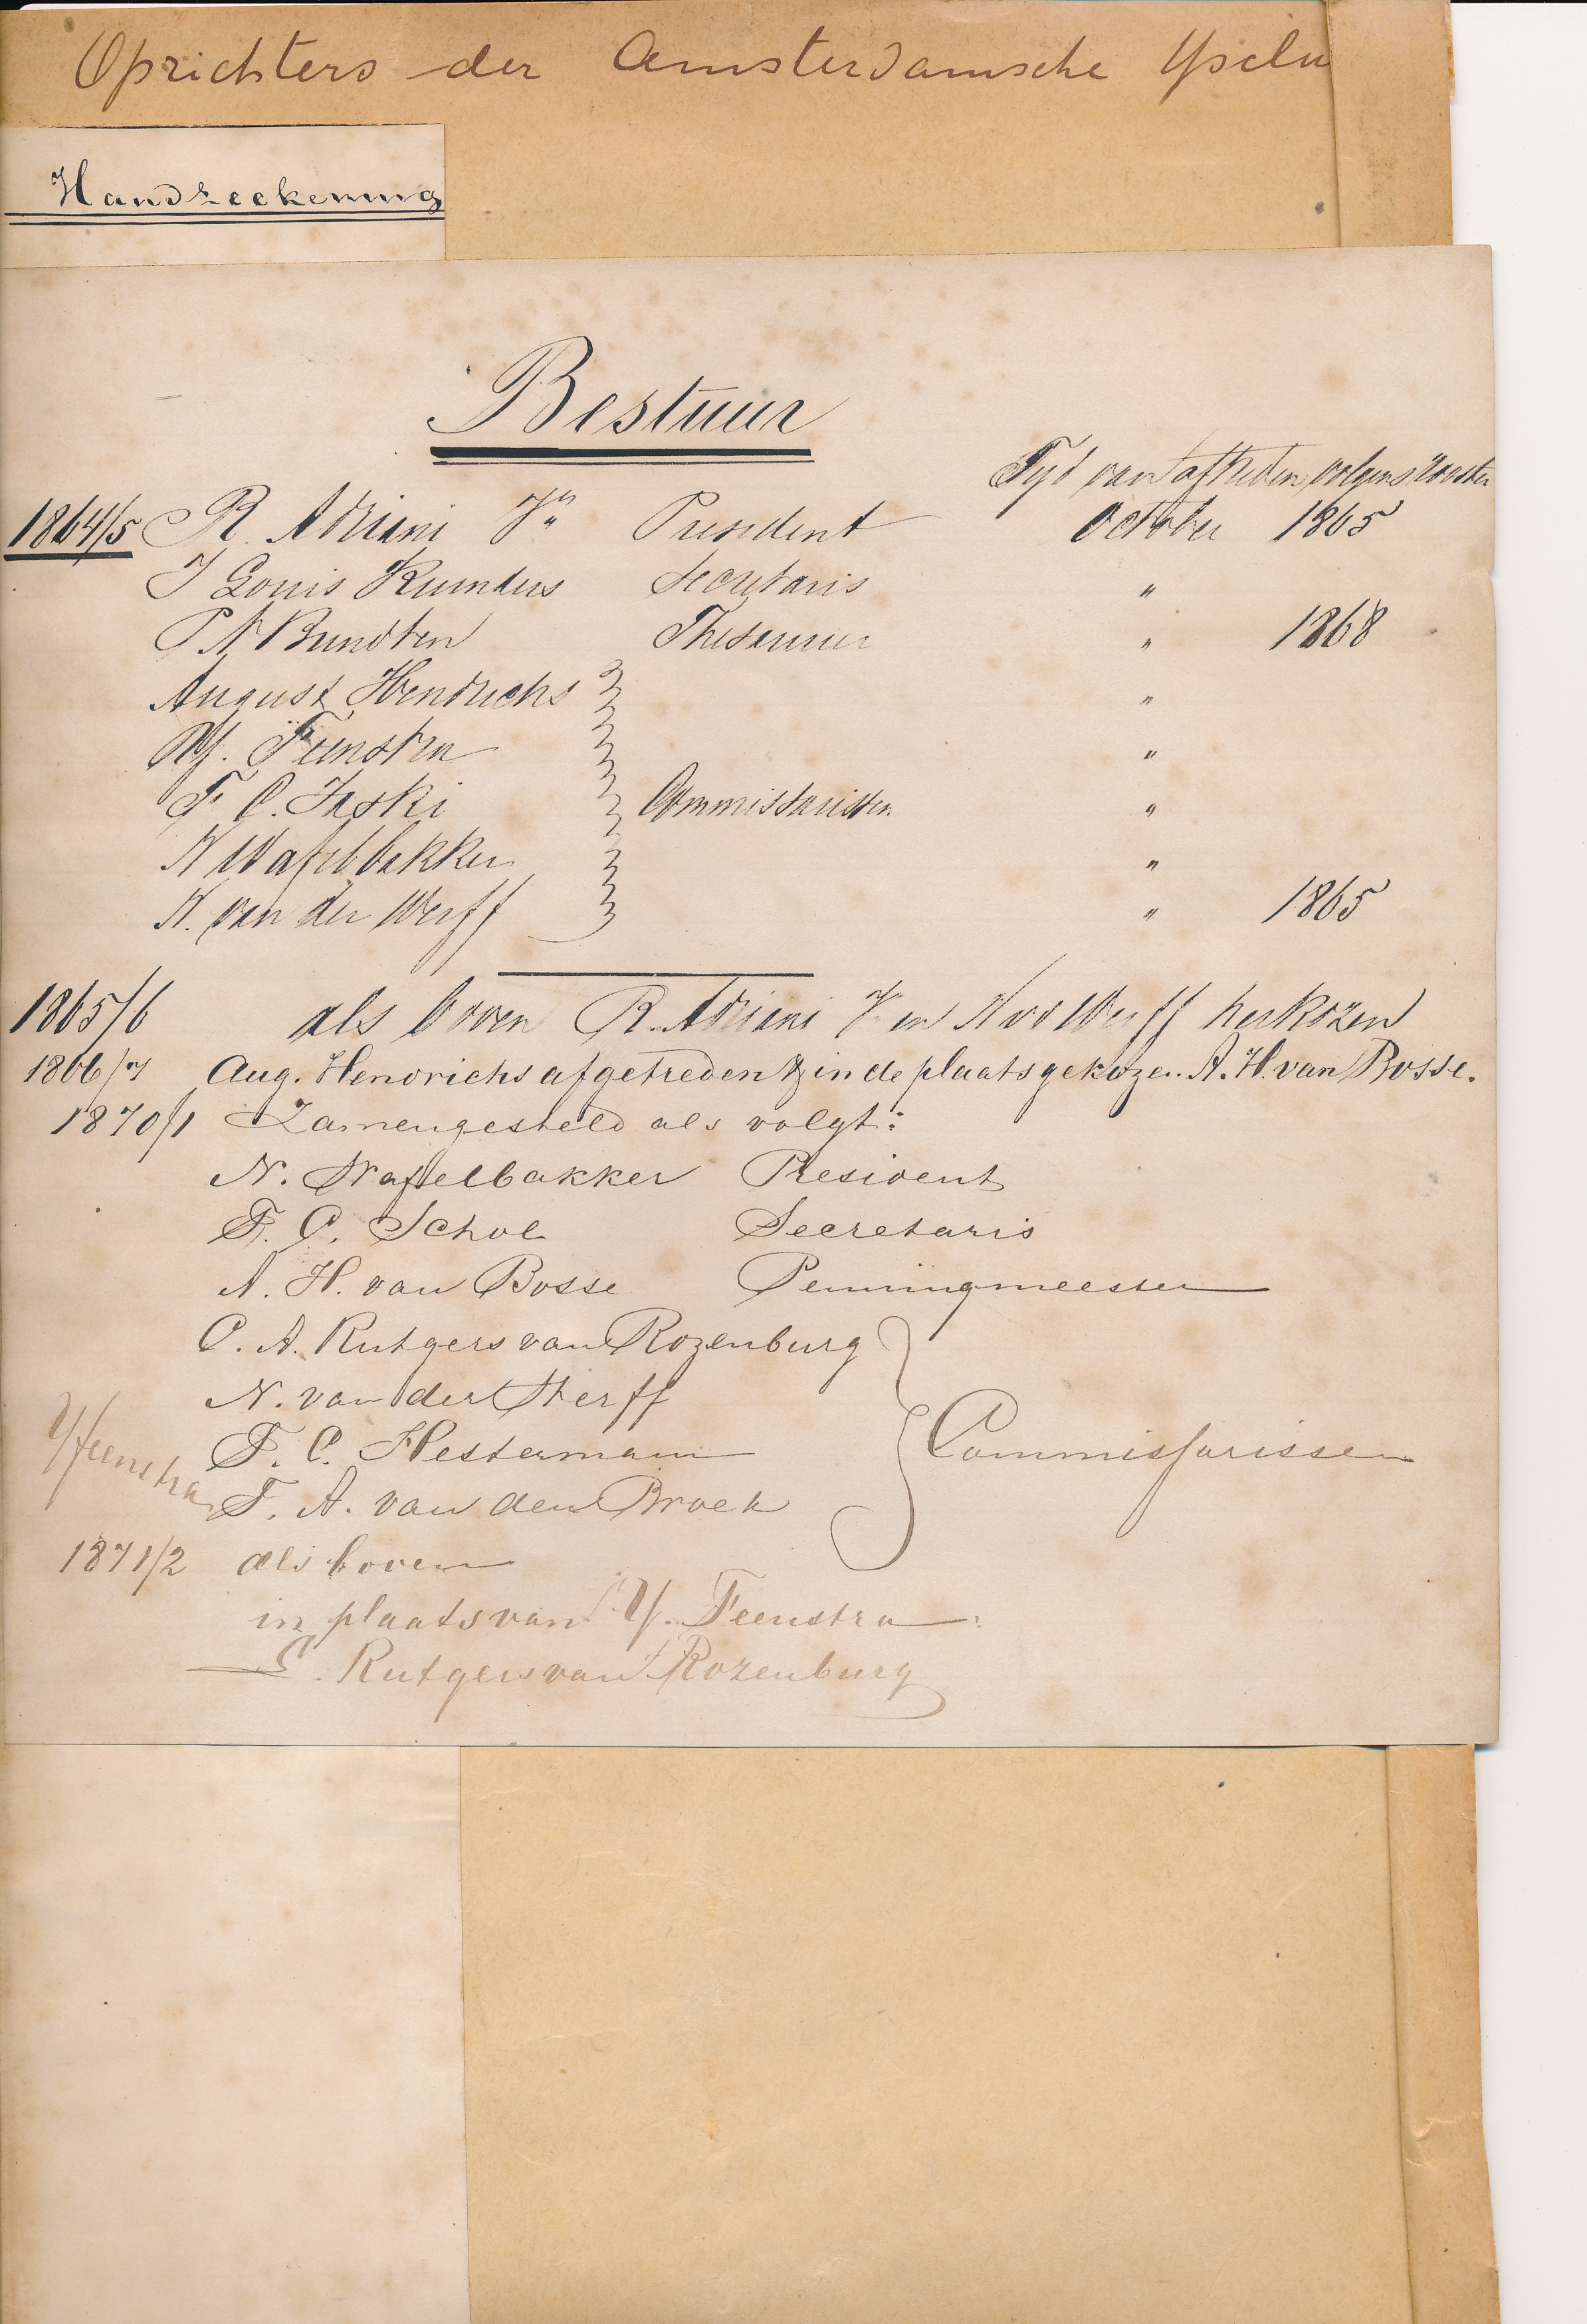 Oprichters der Amsterdamsche Ysclu
Handteekening
Bestuur
Tyd van aftreden volgens rooster
1864/5 R. Adriani Jr President October 1865
J Louis Reinders Secretaris "
P N Bundten Thesaurier " 1868
August Hendrichs "
Y. Feenstra "
F C. Jaski Commissarissen "
N Wafelbakker "
N. van der Werff " 1865
1865/6 als boven R. Adriani Jr en N v d Werff herkozen
1866/7 Aug. Hendrichs afgetreden & in de plaats gekozen A. H. van Bosse.
1870/1 Zamengesteld als volgt:
N. Wafelbakker President
F. C. Schol Secretaris
A. H. van Bosse Penningmeester
C. A. Rutgers van Rozenburg
N. van der Werff
F. C. Hestermann Commissarissen
Y Feenstra
F. A. van den Broek
1871/2 als boven
in plaats van Y. Feenstra
C. Rutgers van Rozenburg